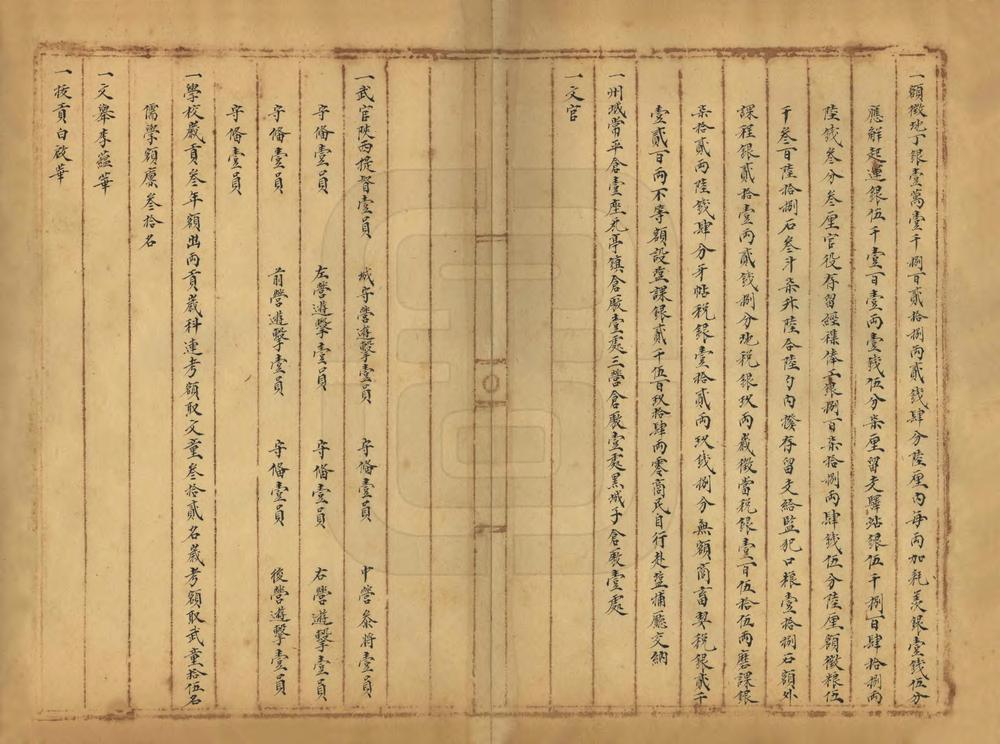 一額徵地丁銀壹萬壹千捌百貳拾捌兩貳錢肆分陸厘內每兩加耗羡銀壹錢伍分
應解起運銀伍千壹百壹兩壹錢伍分柒厘留支驛站銀伍千捌百肆拾捌兩
陸錢叁分叁厘官役存留經襍俸工銀捌百柒拾捌兩肆錢伍分陸厘額徵粮伍
千叁百陸拾捌石叁斗柒升陸合陸勺內撥存留支給監犯口粮壹拾捌石額外
課程銀貳拾壹兩貳錢捌分地稅銀玖兩歲徵當稅銀壹百伍拾伍兩磨課銀
柒拾貳兩陸錢肆分牙帖稅銀壹拾貳兩玖錢捌分無額商畜契稅銀貳千
壹貳百兩不等額設塩課銀貳千伍百玖拾肆兩零商民自行赴塩捕廳交納
一州城常平倉壹座瓦亭鎮倉厫壹處三營倉厫壹處黑城子倉厫壹處
一文官
一武官陝西提督壹員 城守營遊擊壹員 守備壹員 中營叅將壹員
守備壹員 左營遊擊壹員 守備壹員 右營遊擊壹員
守備壹員 前營遊擊壹員 守備壹員 後營遊擊壹員
守備壹員
一學校歲貢叁年額出兩貢歲科連考額取文童叁拾貳名歲考額取武童拾伍名
儒學額廪叁拾名
一文舉李蕴華
一拔貢白啟華